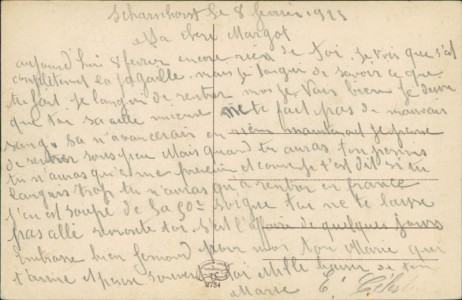 Scharnhorst le 8 février 1923
Ma chère Margot
aujourd'hui 8 février encore rien de toi. Je vois que c'est
complètement la pagaille, mais je languis de savoir ce que
tu fait. Je languis de rentrer moi je vais bien je désire
que toi sa aille mieux ne te fait pas de mauvais
sang, sa n'avancerais en rien maintenant je pense
de rentrer sous peu Mais quand tu auras ton
tu n'auras qu'a me prévenir et comme je t'est dit si tu
languis trop tu n'auras qu'a rentrer en france
J'en est soupé de sa que toi ne te laisse
pas allé remonte toi. C'est l'affaire de quelques jours
Embrasse bien pour moi ton Marie qui
t'aime et pense souvent a toi Mille baisers de ton
Marie
2734